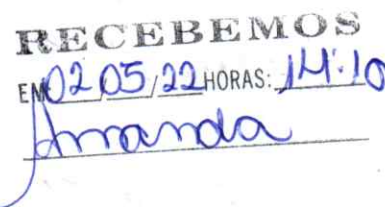 RECEBEMOS
EM 02/05/22 HORAS: 14:10
Amanda